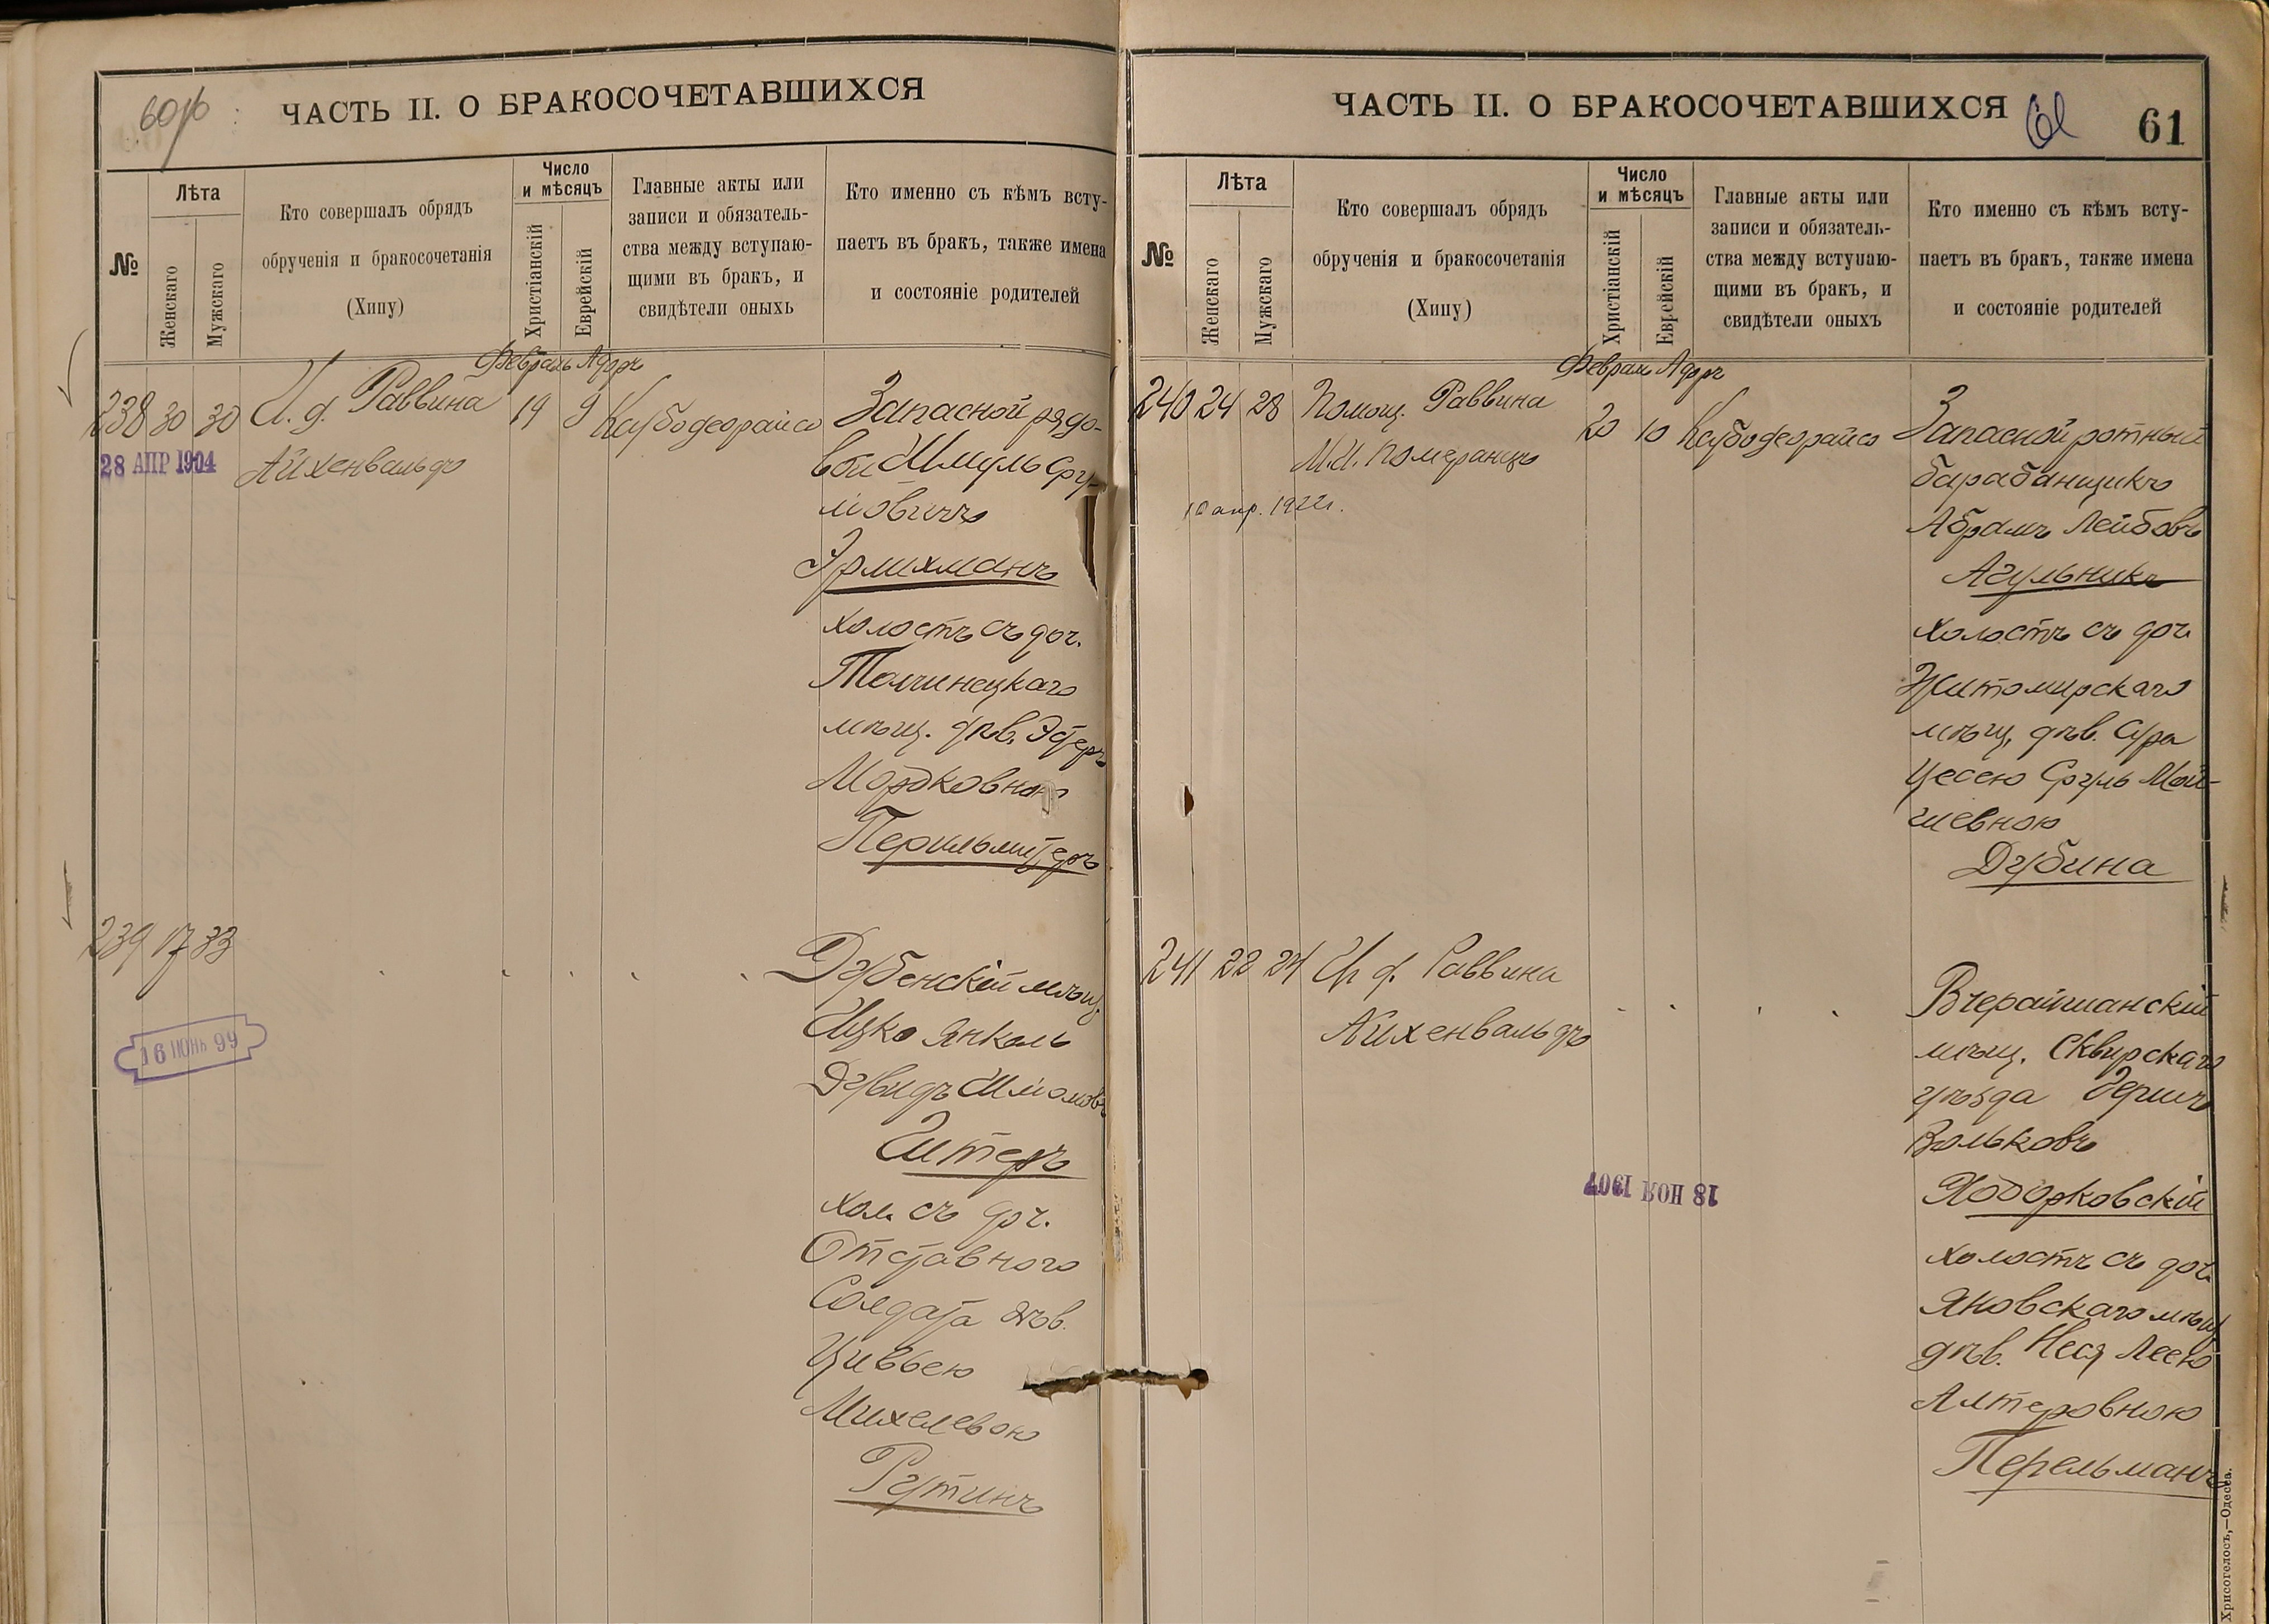 60об
ЧАСТЬ II. О БРАКОСОЧЕТАВШИХСЯ
№
Лѣта
Женскаго
Мужскаго
Кто совершалъ обрядъ
обрученія и бракосочетанія
(Хипу)
Число
и мѣсяцъ
Христіанскій
Еврейскій
Главные акты или
записи и обязатель-
ства между вступаю-
щими въ бракъ, и
свидѣтели оныхъ
Кто именно съ кѣмъ всту-
паетъ въ бракъ, также имена
и состояніе родителей
Февраль Адаръ
238 30 30 И. д. Раввина 19 9 Ксубодеорайсо Запасной рядо-
28 АПР 1904
Айхенвальдъ
вой Шмуль Сру-
мовичъ
Эрлихманъ
холостъ съ доч.
Толчинецкаго
мѣщ. дѣв. Эстеръ
Мордковною
Перильмутеръ
239 17 33 Дубенскій мѣщ.
16 ІЮНЬ 99
Ицко Янкель
Дувидъ Шмомовъ
Штеръ
хол. съ доч.
Отставного
Солдата дѣв.
Цивьею
Михелевою
Рутинъ
ЧАСТЬ II. О БРАКОСОЧЕТАВШИХСЯ
61
61
№
Лѣта
Женскаго
Мужскаго
Кто совершалъ обрядъ
обрученія и бракосочетанія
(Хипу)
Число
и мѣсяцъ
Христіанскій
Еврейскій
Главные акты или
записи и обязатель-
ства между вступаю-
щими въ бракъ, и
свидѣтели оныхъ
Кто именно съ кѣмъ всту-
паетъ въ бракъ, также имена
и состояніе родителей
Февраль Адаръ
240 24 28 Помощ. Раввина 20 10 Ксубодеорайсо Запасной ротный
М.И. Померанцъ
барабанщикъ
10 апр. 1922г.
Абрамъ Лейбовъ
Агульникъ
холостъ съ доч.
Житомирскаго
мѣщ. дѣв. Сура
Цесею Сруль Мой-
шевною
Дубина
241 22 24 И. д. Раввина
Айхенвальдъ
Вчерайшанскій
мѣщ. Сквирскаго
уѣзда Герш
Вольковъ
18 НОЯ 1907
Ходорковскій
холостъ съ доч.
Яновскаго мѣщ.
дѣв. Неся Леею
Алтеровною
Перельманъ
Хрисогелосъ,—Одесса.